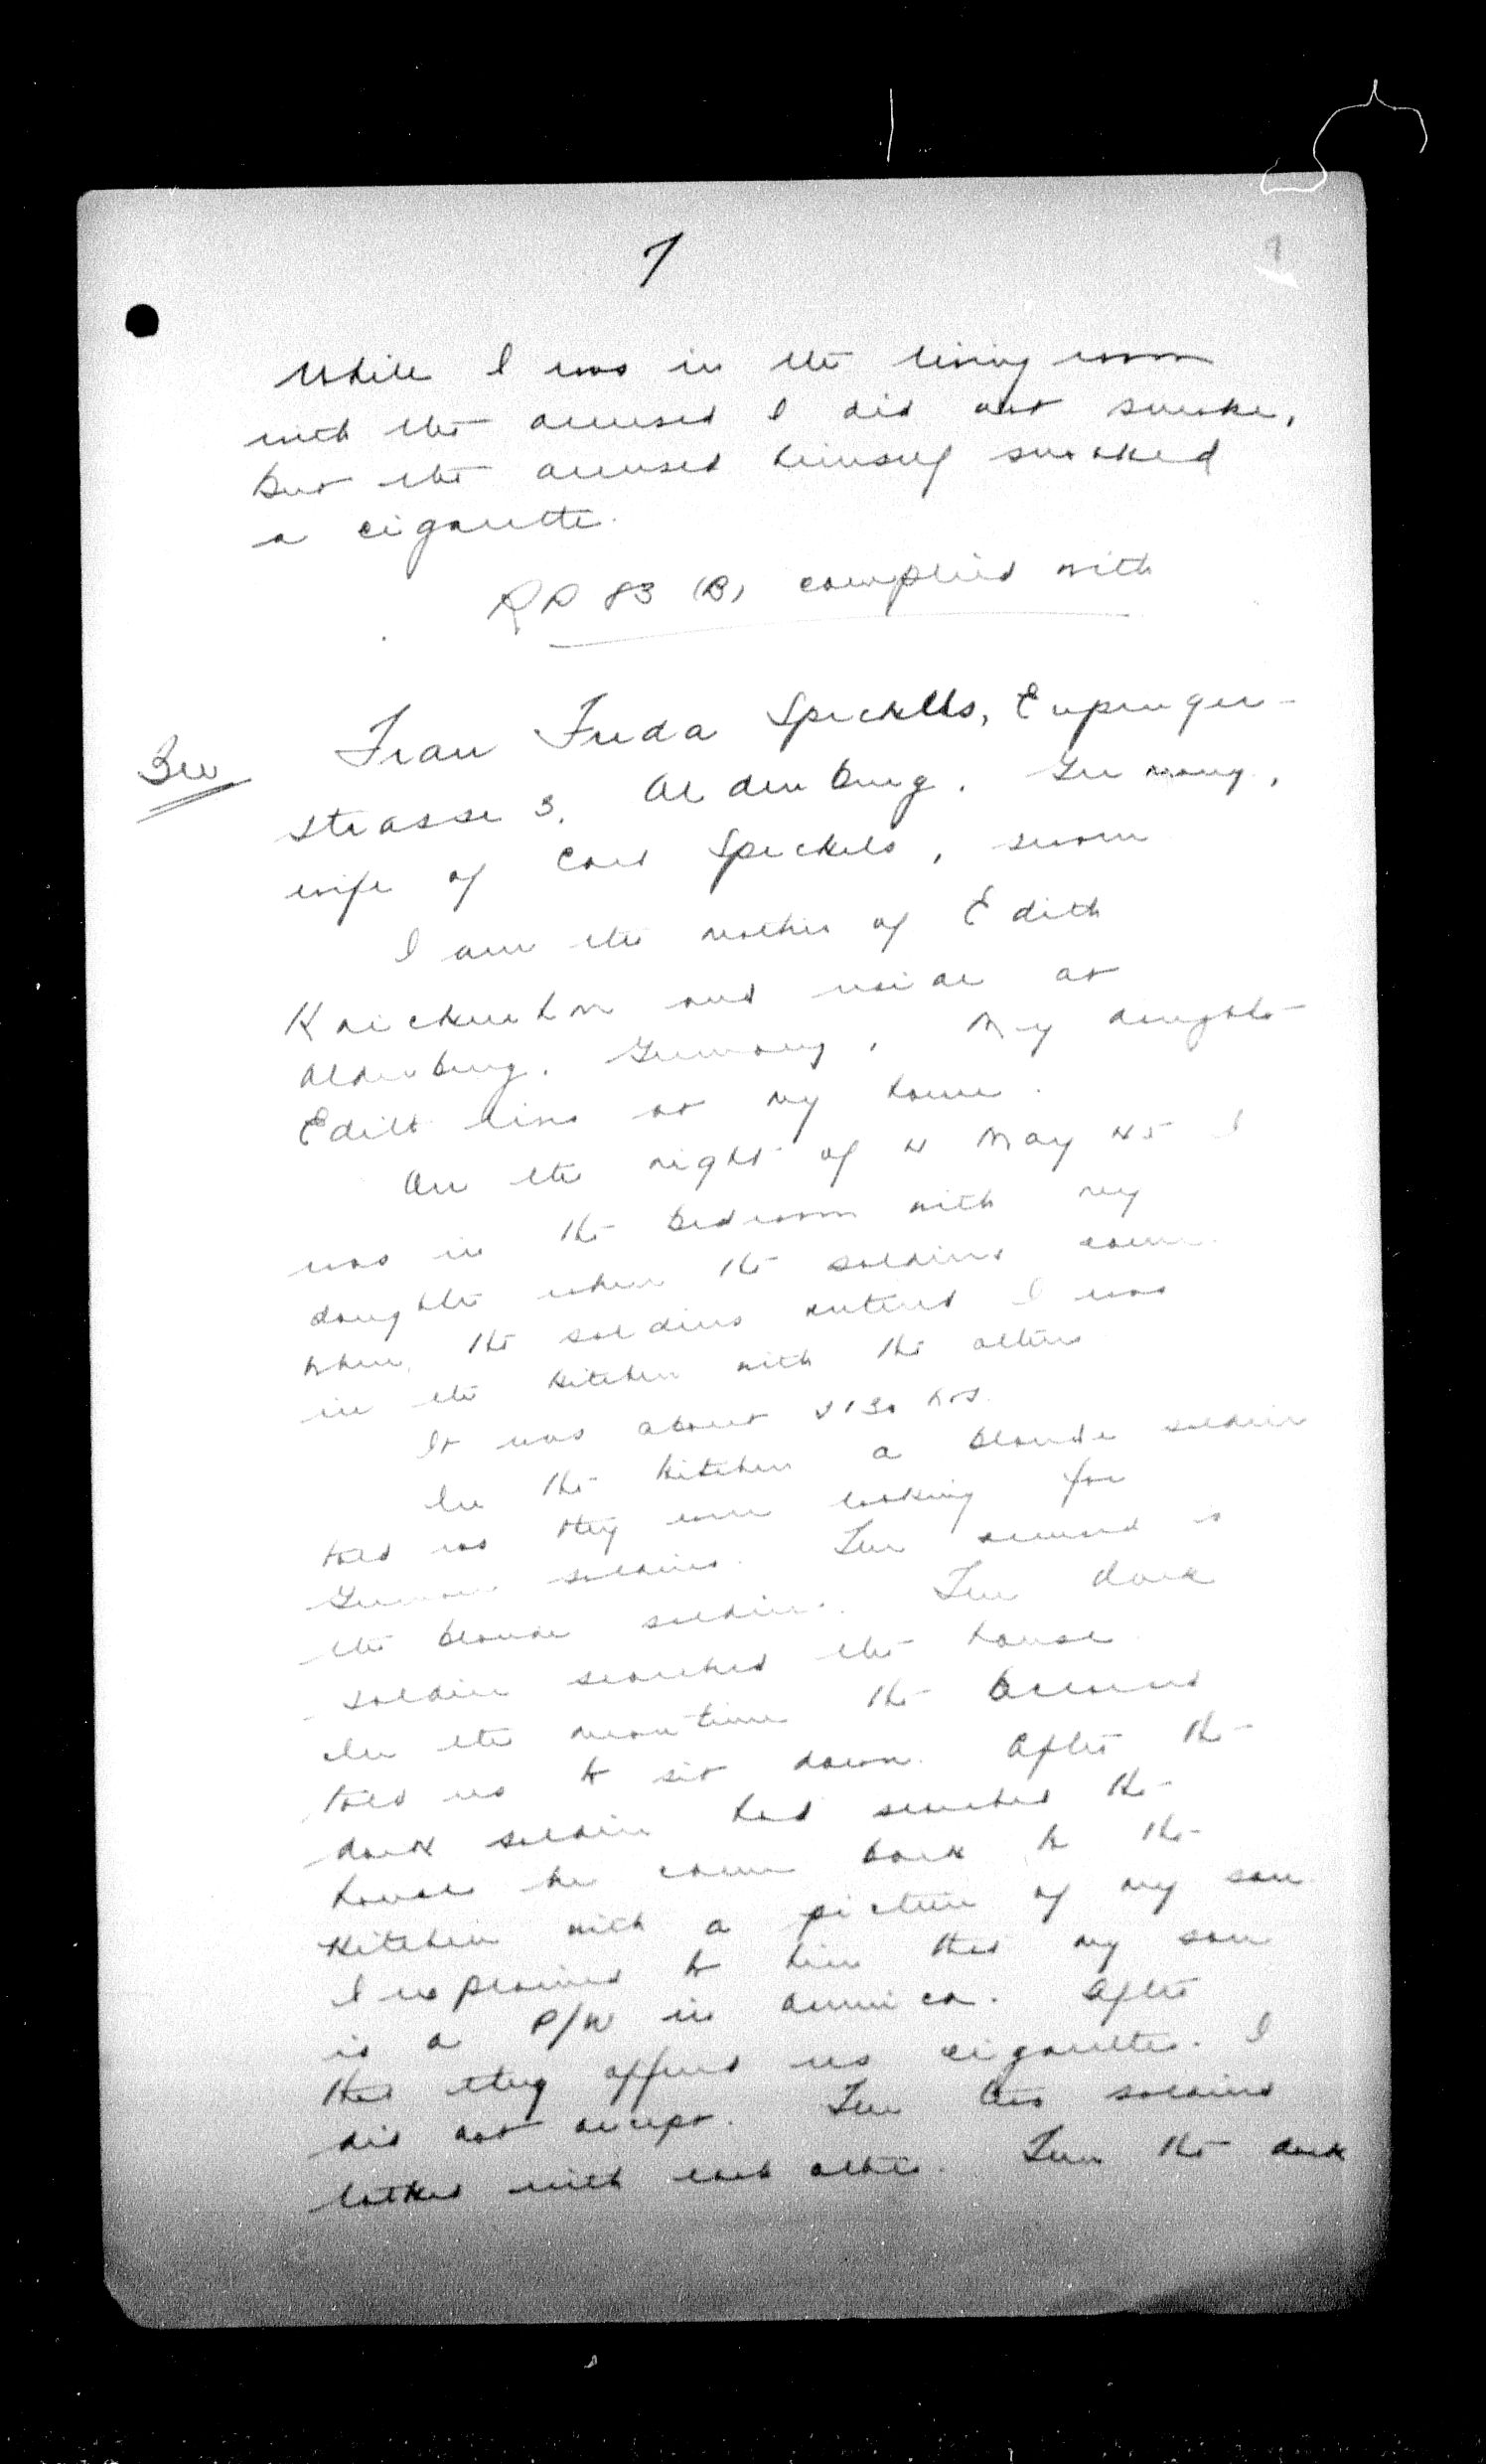 7
While I was in the living room
with the accused I did not smoke,
but the accused himself smoked
a cigarette.
RP 83 (B) complied with
Frau Frieda Spickells,
strasse 3, Oldenburg, Germany,
wife of Carl Spickels, sworn
I am the mother of Edith
and reside at
Oldenburg, Germany. My daughter
Edith lives at my home.
On the night of 4 May 45 I
was in the bedroom with my
daughter when the soldiers came.
When the soldiers entered I was
in the kitchen with the others
It was about 2130 hrs.
In the kitchen a blonde soldier
told us they were looking for
German soldiers. The accused is
the blonde soldier. The dark
soldier searched the house
In the meantime the accused
told us to sit down. After the
dark soldier had searched the
house he came back to the
kitchen with a picture of my son.
I explained to him that my son
is a P/W in America. After
that they offered us cigarettes. I
did not accept. The two soldiers
talked with each other. Then the dark